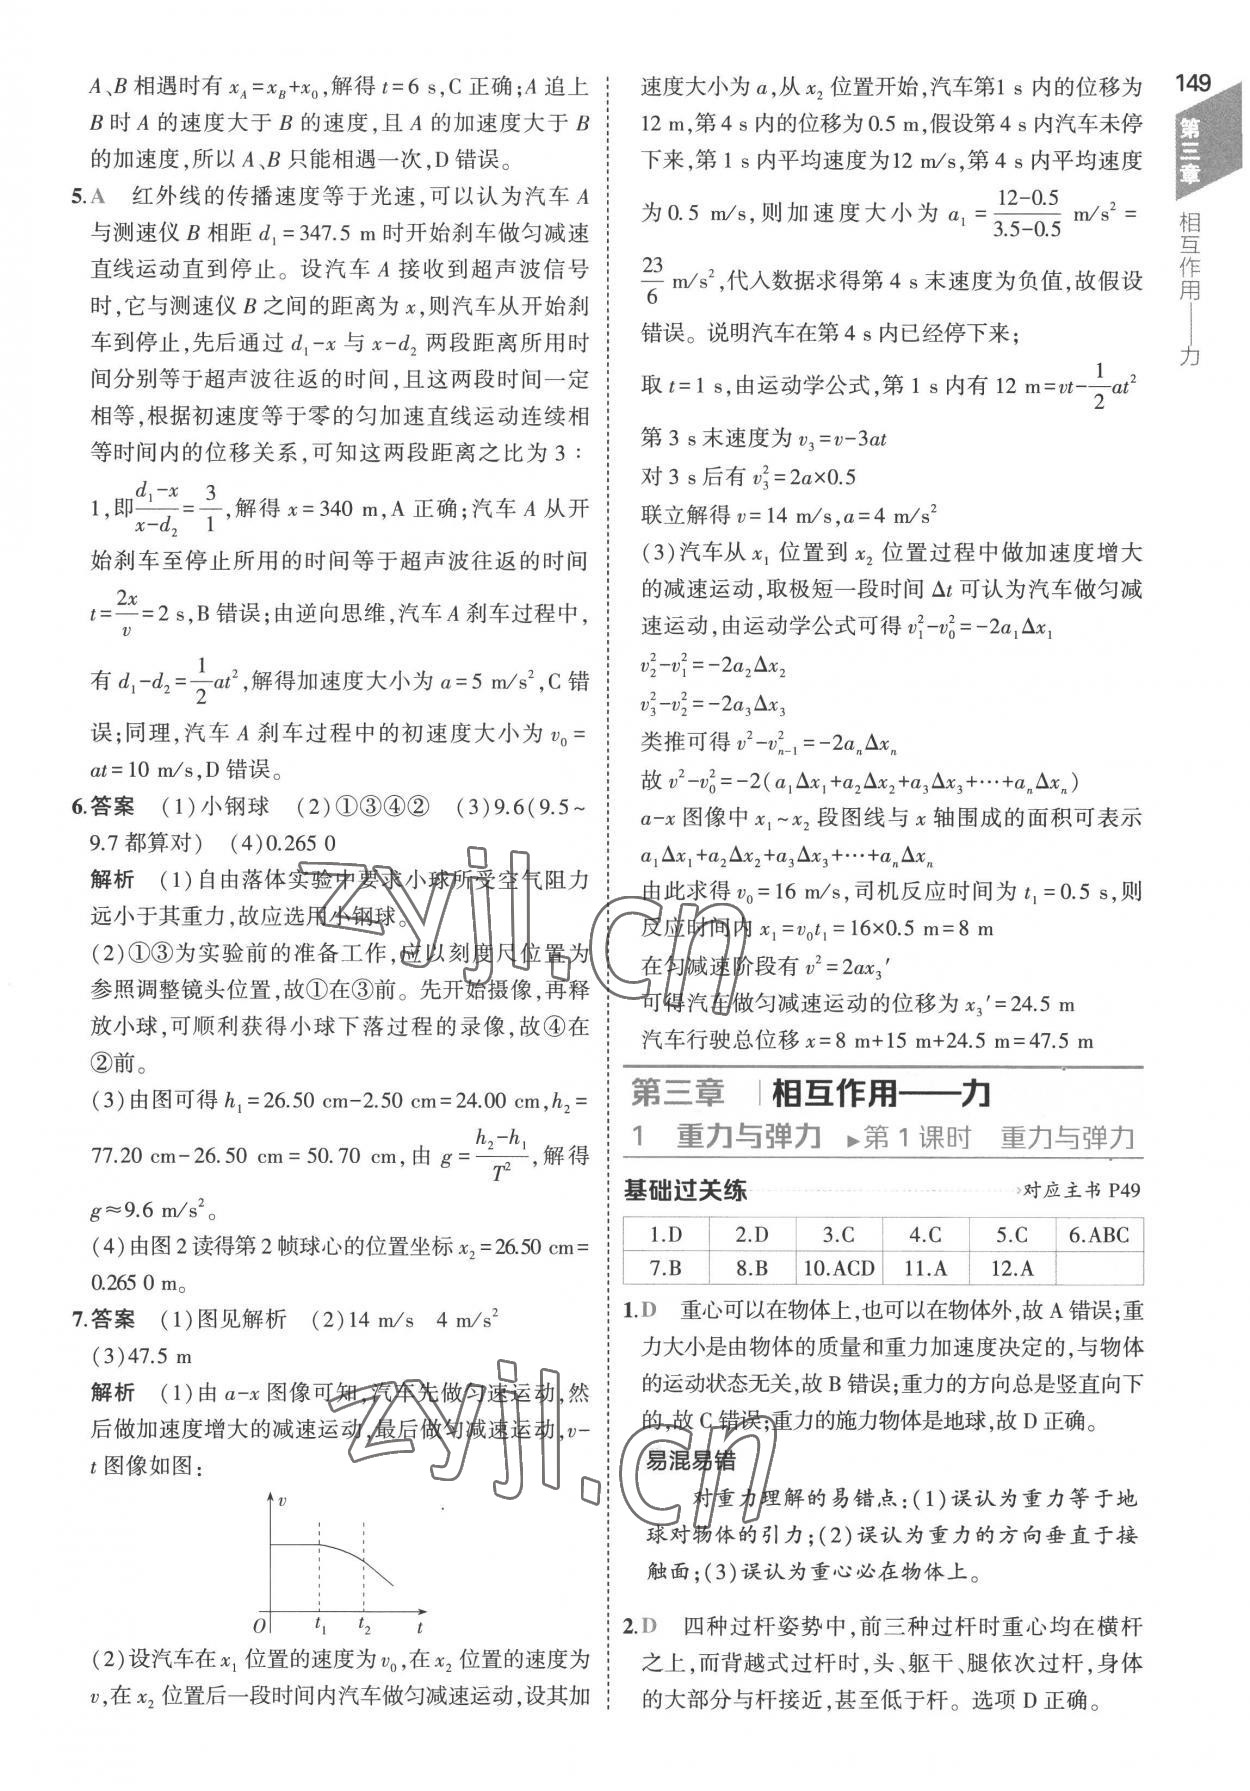 A、B 相遇时有 x_A=x_B+x_0,解得 t=6 s,C 正确;A 追上
B 时 A 的速度大于 B 的速度,且 A 的加速度大于 B
的加速度,所以 A、B 只能相遇一次,D 错误。
5.A 红外线的传播速度等于光速,可以认为汽车 A
与测速仪 B 相距 d₁=347.5 m 时开始刹车做匀减速
直线运动直到停止。设汽车 A 接收到超声波信号
时,它与测速仪 B 之间的距离为 x,则汽车从开始刹
车到停止,先后通过 d₁-x 与 x-d₂ 两段距离所用时
间分别等于超声波往返的时间,且这两段时间一定
相等,根据初速度等于零的匀加速直线运动连续相
等时间内的位移关系,可知这两段距离之比为 3:
1,即(d₁-x)/(x-d₂)=3/1,解得 x=340 m,A 正确;汽车 A 从开
始刹车至停止所用的时间等于超声波往返的时间
t=2x/v=2 s,B 错误;由逆向思维,汽车 A 刹车过程中,
有 d₁-d₂=1/2at²,解得加速度大小为 a=5 m/s²,C 错
误;同理,汽车 A 刹车过程中的初速度大小为 v₀=
at=10 m/s,D 错误。
6.答案 (1)小钢球 (2)①③④② (3)9.6(9.5~
9.7 都算对) (4)0.265 0
解析 (1)自由落体实验中要求小球所受空气阻力
远小于其重力,故应选用小钢球。
(2)①③为实验前的准备工作,应以刻度尺位置为
参照调整镜头位置,故①在③前。先开始摄像,再释
放小球,可顺利获得小球下落过程的录像,故④在
②前。
(3)由图可得 h₁=26.50 cm-2.50 cm=24.00 cm,h₂=
77.20 cm-26.50 cm=50.70 cm,由 g=(h₂-h₁)/T²,解得
g≈9.6 m/s²。
(4)由图 2 读得第 2 帧球心的位置坐标 x₂=26.50 cm=
0.265 0 m。
7.答案 (1)图见解析 (2)14 m/s 4 m/s²
(3)47.5 m
解析 (1)由 a-x 图像可知,汽车先做匀速运动,然
后做加速度增大的减速运动,最后做匀减速运动,v-
t 图像如图:
v
O t₁ t₂ t
(2)设汽车在 x₁ 位置的速度为 v₀,在 x₂ 位置的速度为
v,在 x₂ 位置后一段时间内汽车做匀减速运动,设其加
速度大小为 a,从 x₂ 位置开始,汽车第1 s 内的位移为
12 m,第 4 s 内的位移为 0.5 m,假设第 4 s 内汽车未停
下来,第 1 s 内平均速度为12 m/s,第 4 s 内平均速度
为 0.5 m/s,则加速度大小为 a₁=(12-0.5)/(3.5-0.5) m/s²=
23/6 m/s²,代入数据求得第 4 s 末速度为负值,故假设
错误。说明汽车在第 4 s 内已经停下来;
取 t=1 s,由运动学公式,第 1 s 内有 12 m=vt-1/2at²
第 3 s 末速度为 v₃=v-3at
对 3 s 后有 v₃²=2a×0.5
联立解得 v=14 m/s,a=4 m/s²
(3)汽车从 x₁ 位置到 x₂ 位置过程中做加速度增大
的减速运动,取极短一段时间 Δt 可认为汽车做匀减
速运动,由运动学公式可得 v₁²-v₀²=-2a₁Δx₁
v₂²-v₁²=-2a₂Δx₂
v₃²-v₂²=-2a₃Δx₃
类推可得 v²-v²ₙ₋₁=-2aₙΔxₙ
故 v²-v₀²=-2(a₁Δx₁+a₂Δx₂+a₃Δx₃+⋯+aₙΔxₙ)
a-x 图像中 x₁~x₂ 段图线与 x 轴围成的面积可表示
a₁Δx₁+a₂Δx₂+a₃Δx₃+⋯+aₙΔxₙ
由此求得 v₀=16 m/s,司机反应时间为 t₁=0.5 s,则
反应时间内 x₁=v₀t₁=16×0.5 m=8 m
在匀减速阶段有 v²=2ax₃′
可得汽车做匀减速运动的位移为 x₃′=24.5 m
汽车行驶总位移 x=8 m+15 m+24.5 m=47.5 m
第三章 相互作用——力
1 重力与弹力 ▶第 1 课时 重力与弹力
基础过关练 对应主书 P49
1.D 2.D 3.C 4.C 5.C 6.ABC
7.B 8.B 10.ACD 11.A 12.A
1.D 重心可以在物体上,也可以在物体外,故 A 错误;重
力大小是由物体的质量和重力加速度决定的,与物体
的运动状态无关,故 B 错误;重力的方向总是竖直向下
的,故 C 错误;重力的施力物体是地球,故 D 正确。
易混易错
对重力理解的易错点:(1)误认为重力等于地
球对物体的引力;(2)误认为重力的方向垂直于接
触面;(3)误认为重心必在物体上。
2.D 四种过杆姿势中,前三种过杆时重心均在横杆
之上,而背越式过杆时,头、躯干、腿依次过杆,身体
的大部分与杆接近,甚至低于杆。选项 D 正确。
149
第三章
相互作用——力
zyjl.cn
zyjl.cn